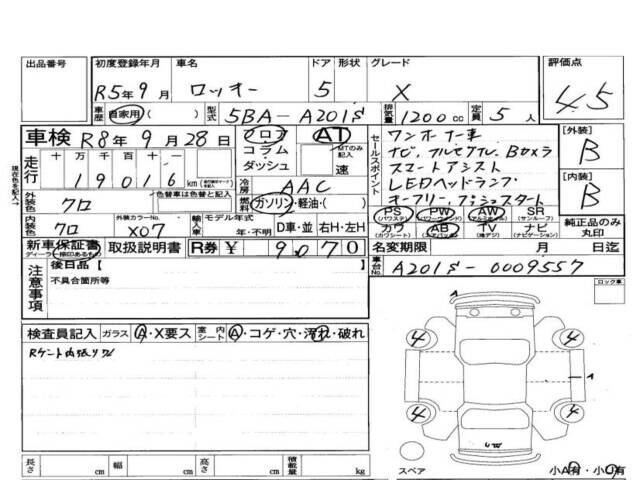 出品番号 初度登録年月 車名 ドア 形状 グレード 評価点
R5年9月 ロッキー 5 X 4.5
車歴 自家用 ( ) 型式 5BA-A201S 排気量 1200cc 定員 5人
車検 R8年9月28日 フロア AT
コラム MTのみ記入
ダッシュ 速
走行 十万千百十一
19016 km
冷房 AAC
外装色 クロ 色替車は替色と記入
燃料 ガソリン・軽油・( )
内装色 クロ 外装カラーNo. X07 輸入車 モデル年式 年・不明 D車・並 右H・左H
新車保証書 ディーラー捺印あるもの 取扱説明書 R券 ¥ 9070
現在色を記入→
セールスポイント
ワンオーナー車
ナビ、フルセグTV、Bカメラ
スマートアシスト
LEDヘッドランプ
オープリー、プッシュスタート
PS (パワステ) PW (パワーウィンド) AW (アルミホイル) SR (サンルーフ)
カワ (カワシート) AB (エアバッグ) TV (地デジ) ナビ (ナビゲーション)
[外装] B
[内装] B
純正品のみ丸印
名変期限 月 日迄
車台No. A201S-0009557
注意事項 後日品【 】
不具合箇所等
ロック車
検査員記入 ガラス A・X要ス 室内シート A・コゲ・穴・汚れ・破れ
Rゲート内張りワレ
A
4 4
A
4 4
スペア 小A有・小U有
長さ cm 幅 cm 高さ cm 積載量 kg